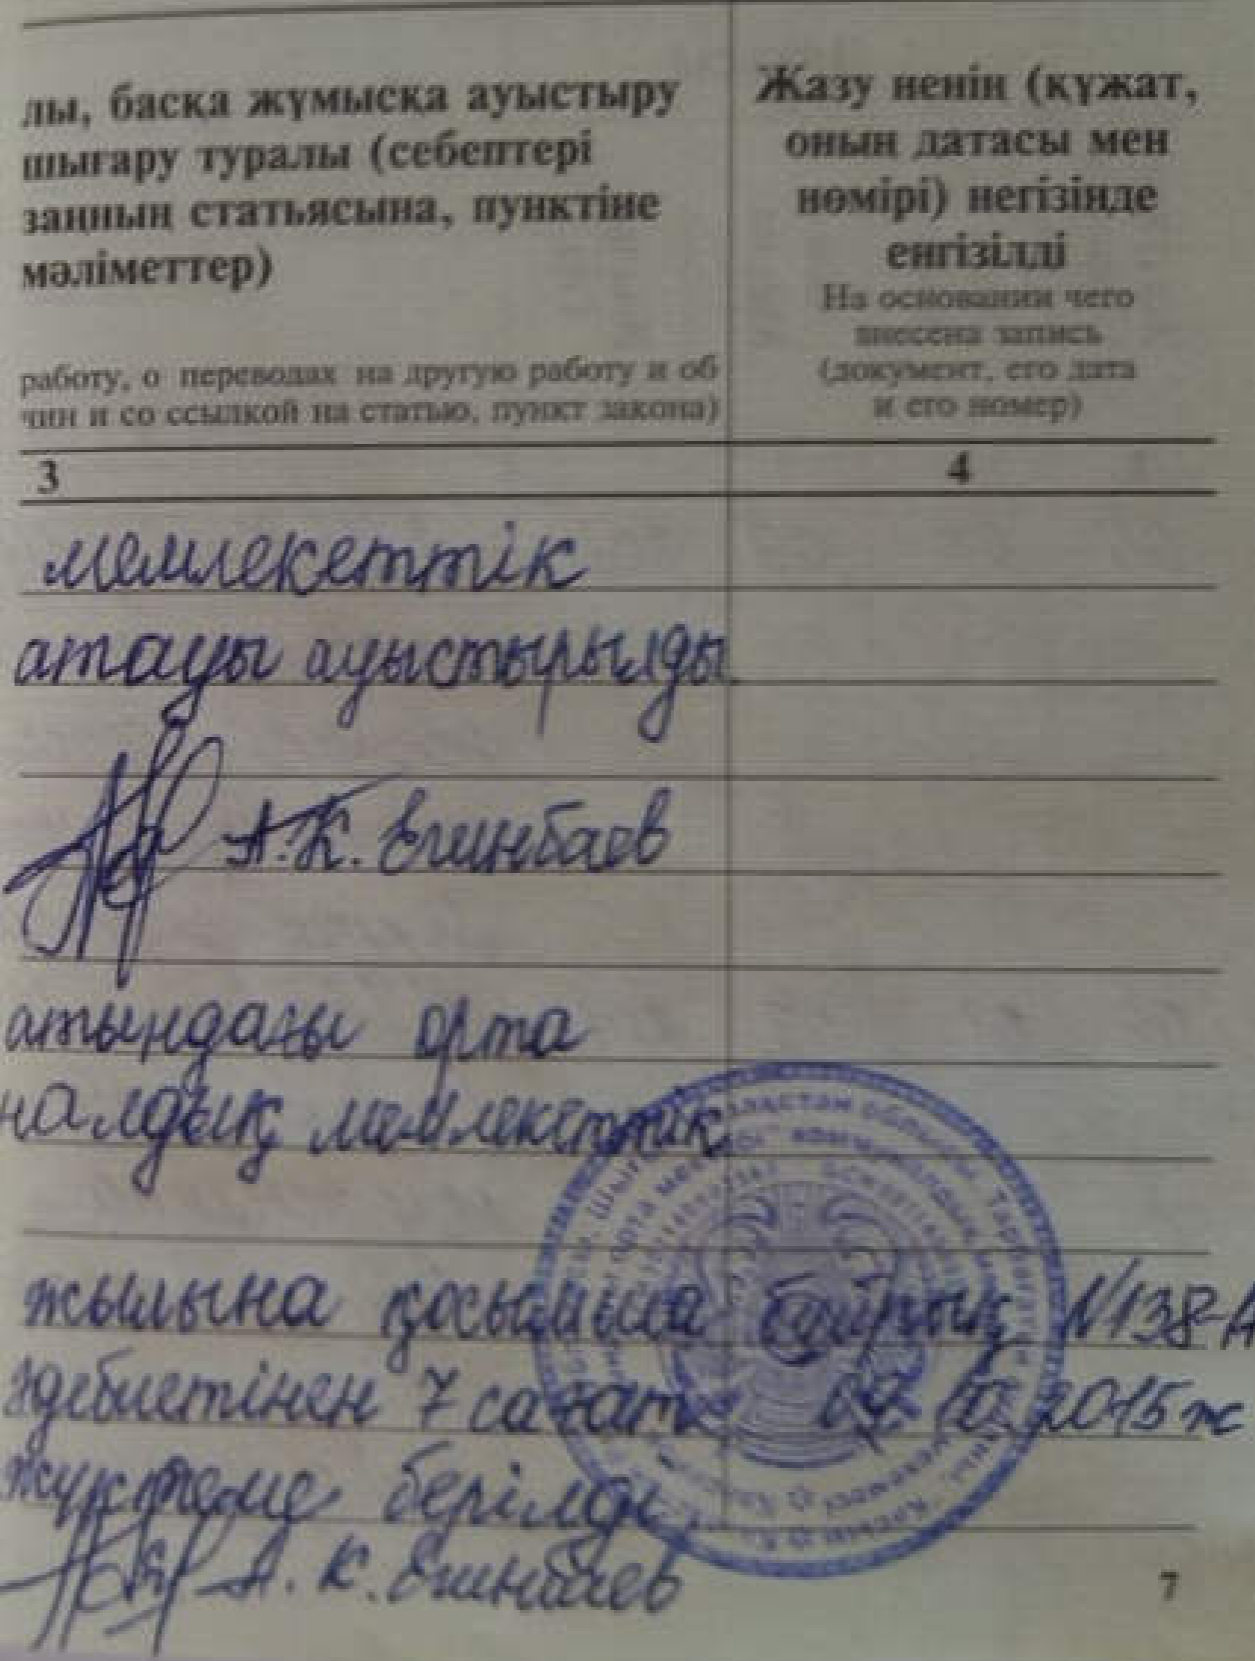 лы, басқа жұмысқа ауыстыру
шығару туралы (себептері
заңның статьясына, пунктіне
мәліметтер)
работу, о переводах на другую работу и об
чин и со ссылкой на статью, пункт закона)
Жазу ненің (құжат,
оның датасы мен
нөмірі) негізінде
енгізілді
На основании чего
внесена запись
(документ, его дата
и его номер)
3
4
мемлекеттік
атауы ауыстырылды.
А.К. Егинбаев
атындағы орта
налдық мемлекеттік
жылына қосымша бұйрық N138-А
әдебиетінен 7 сағат 09.10.2015ж
жүктеме берілді
А. К. Егинбаев
7